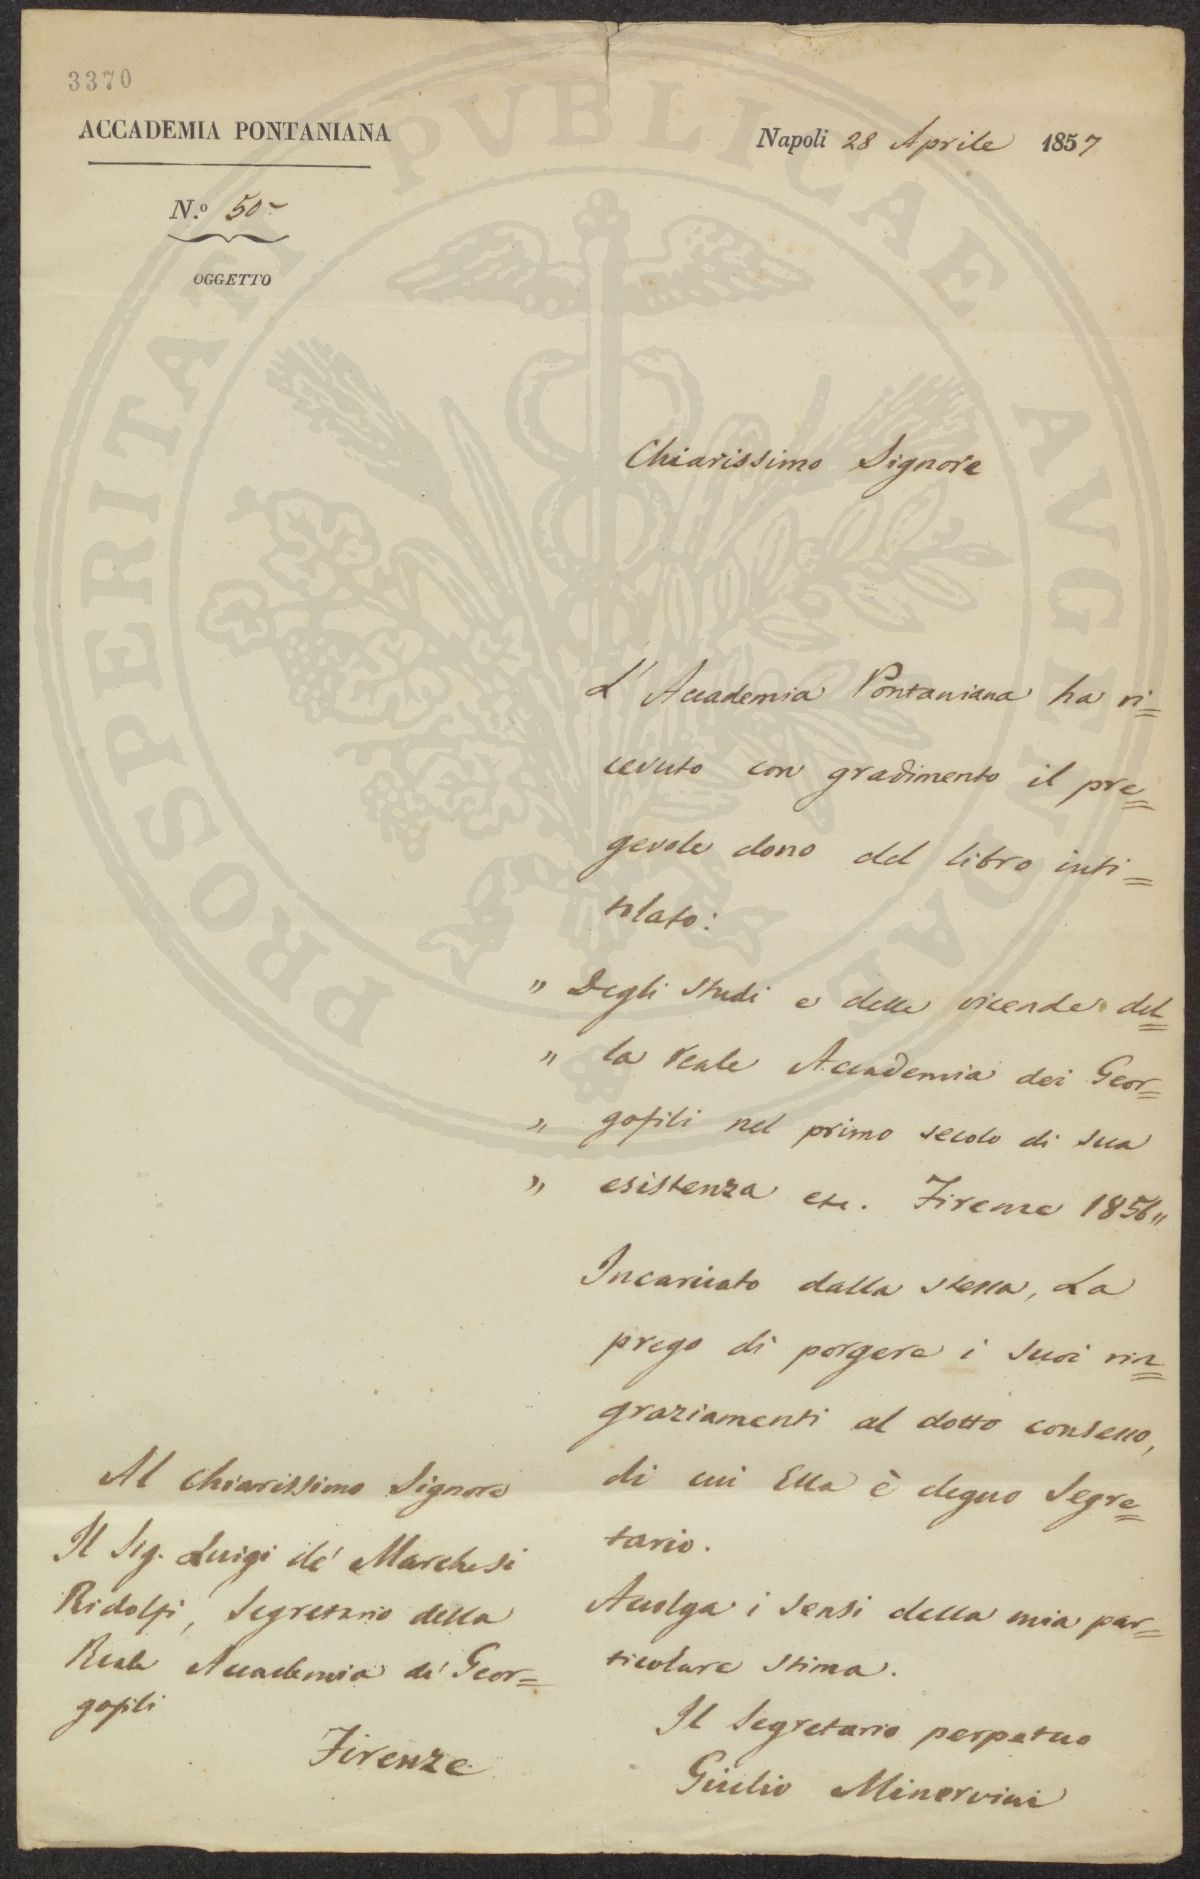 3370
ACCADEMIA PONTANIANA
Napoli 28 Aprile 1857
N.º 50-
OGGETTO
Chiarissimo Signore
L' Accademia Pontaniana ha ri=
cevuto con gradimento il pre=
gevole dono del libro inti=
tolato:
" Degli studi e delle vicende del=
" la reale Accademia dei Geor=
" gofili nel primo secolo di sua
" esistenza etc. Firenze 1856"
Incaricato dalla stessa, La
prego di porgere i suoi rin=
graziamenti al dotto consesso,
di cui Ella è degno Segre=
tario.
Accolga i sensi della mia par=
ticolare stima.
Il Segretario perpetuo
Giulio Minervini
Al Chiarissimo Signore
Il Sig. Luigi de' Marchesi
Ridolfi, Segretario della
Reale Accademia de' Geor=
gofili
Firenze
PROSPERITATI PVBLICAE AVGENDAE